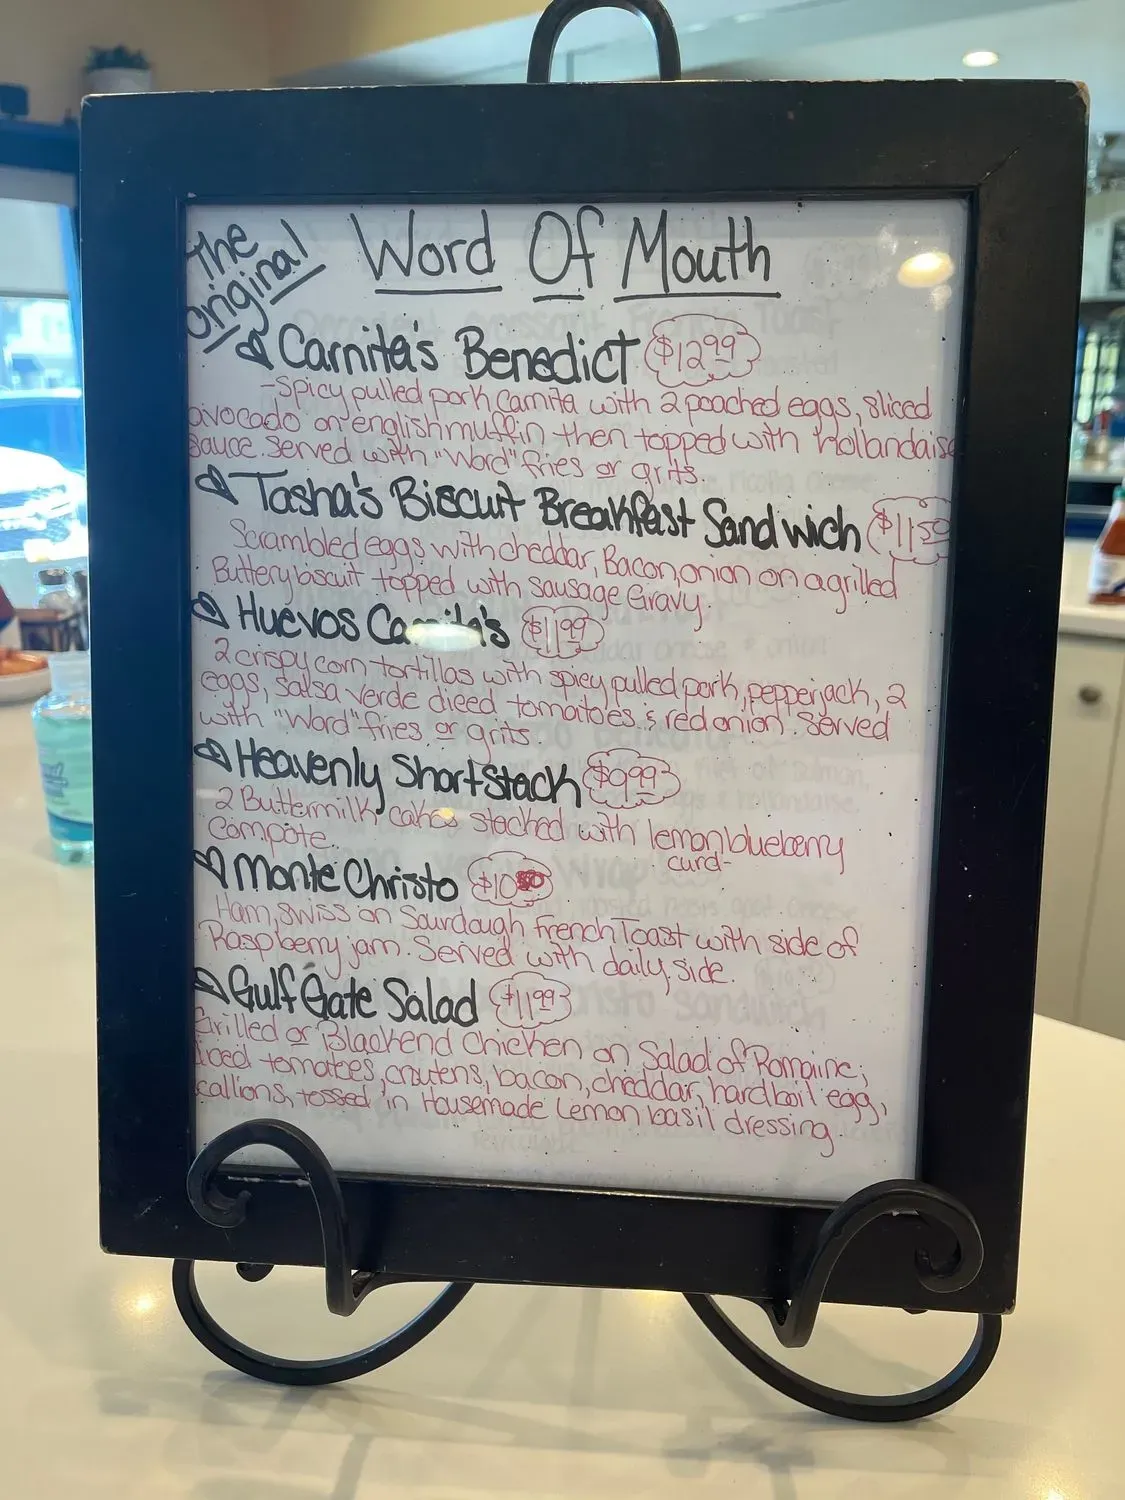 The Original
Word Of Mouth
Carnita's Benedict $12.99
-Spicy pulled pork Carnita with 2 poached eggs, sliced
avocado on english muffin, then topped with hollandaise
sauce. Served with "Word" fries or grits.
Tasha's Biscuit Breakfast Sandwich $11.50
Scrambled eggs with cheddar, Bacon, onion on a grilled
Buttery biscuit topped with sausage Gravy.
Huevos $11.99
2 crispy corn tortillas with spicy pulled pork, pepperjack, 2
eggs, salsa verde diced tomatoes & red onion. Served
with "Word" fries or grits.
Heavenly Short Stack $9.99
2 Buttermilk cakes stacked with lemon blueberry
compote. curd-
Monte Christo $10.50
Ham, swiss on Sourdough French Toast with side of
Raspberry jam. Served with daily side.
Gulf Gate Salad $11.99
Grilled or Blackend Chicken on Salad of Romaine,
diced tomatoes, croutens, bacon, cheddar, hard boil egg,
scallions, tossed in Housemade Lemon basil dressing.